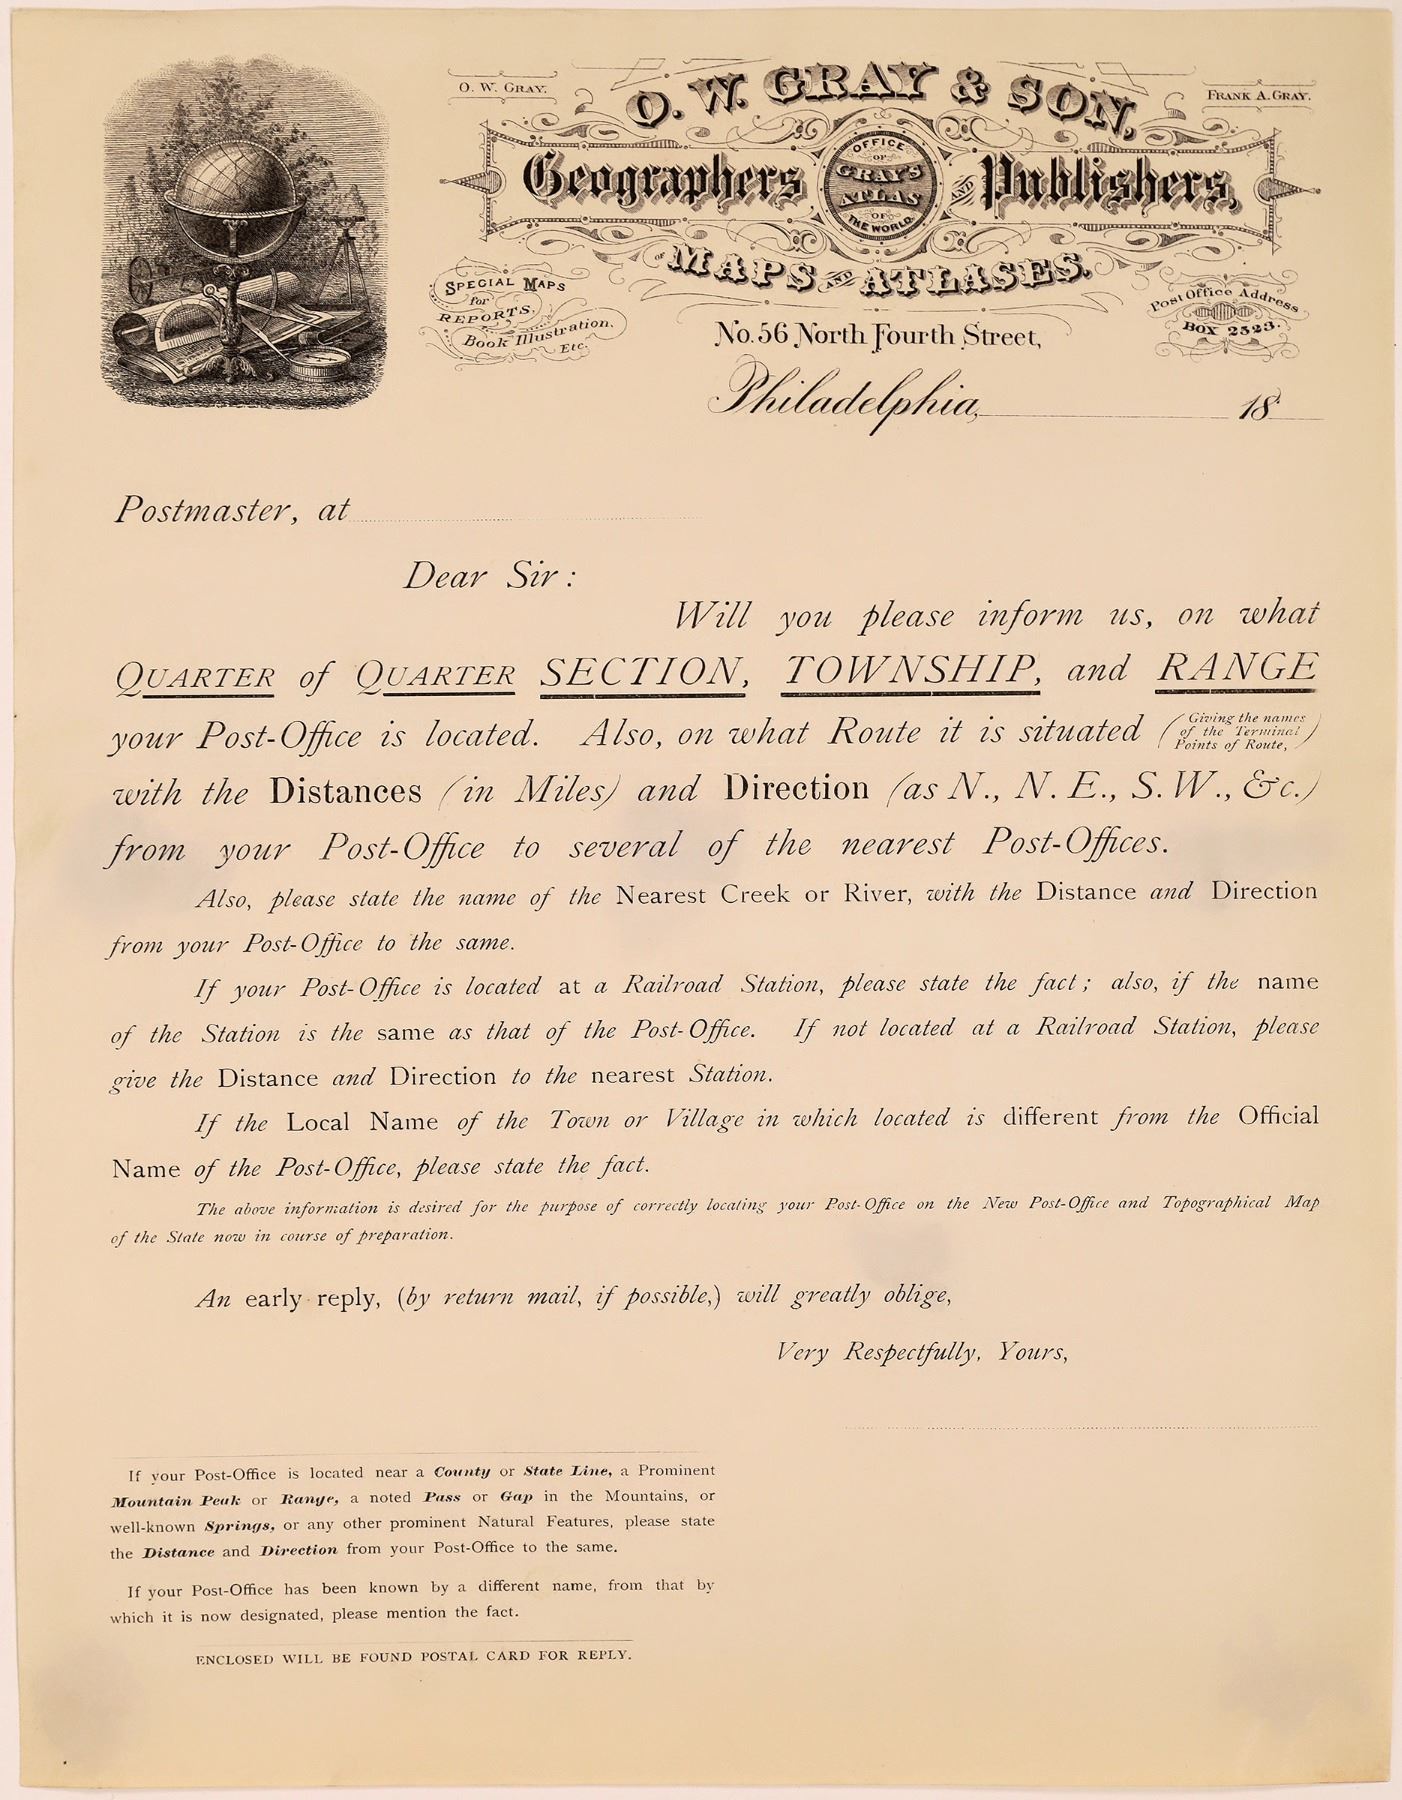 O. W. GRAY.
O. W. GRAY & SON,
FRANK A. GRAY.
Geographers AND Publishers,
OFFICE
OF
GRAY'S
ATLAS
OF
THE WORLD.
OF MAPS AND ATLASES.
SPECIAL MAPS
for
REPORTS,
Book Illustration,
Etc.
Post Office Address
BOX 2523.
No. 56 North Fourth Street,
Philadelphia, 18
Postmaster, at
Dear Sir:
Will you please inform us, on what
QUARTER of QUARTER SECTION, TOWNSHIP, and RANGE
your Post-Office is located. Also, on what Route it is situated (Giving the names
of the Terminal
Points of Route,)
with the Distances (in Miles) and Direction (as N., N. E., S. W., &c.)
from your Post-Office to several of the nearest Post-Offices.
Also, please state the name of the Nearest Creek or River, with the Distance and Direction
from your Post-Office to the same.
If your Post-Office is located at a Railroad Station, please state the fact; also, if the name
of the Station is the same as that of the Post-Office. If not located at a Railroad Station, please
give the Distance and Direction to the nearest Station.
If the Local Name of the Town or Village in which located is different from the Official
Name of the Post-Office, please state the fact.
The above information is desired for the purpose of correctly locating your Post-Office on the New Post-Office and Topographical Map
of the State now in course of preparation.
An early reply, (by return mail, if possible,) will greatly oblige,
Very Respectfully, Yours,
If your Post-Office is located near a County or State Line, a Prominent
Mountain Peak or Range, a noted Pass or Gap in the Mountains, or
well-known Springs, or any other prominent Natural Features, please state
the Distance and Direction from your Post-Office to the same.
If your Post-Office has been known by a different name, from that by
which it is now designated, please mention the fact.
ENCLOSED WILL BE FOUND POSTAL CARD FOR REPLY.